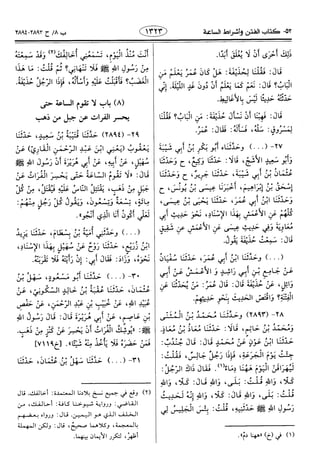 ٥٢- كتاب الفتن وأشراط الساعة
١٣٢٣
ب ٨/ ح ٢٨٩٢-٢٨٩٤
ذلك أحرى أن لا يغلق أبدا.
قال: فقلنا لحذيفة: هل كان عمر يعلم من
الباب؟ قال: نعم كما يعلم أن دون غد الليلة. إني
حدثته حديثا ليس بالأغاليط.
قال: فهبنا أن نسأل حذيفة: من الباب؟ فقلنا
لمسروق: سله، فسأله: فقال: عمر.
٢٧- (...) وحدثناه أبو بكر بن أبي شيبة
وأبو سعيد الأشج، قالا: حدثنا وكيع، ح وحدثنا
عثمان بن أبي شيبة، حدثنا جرير، ح وحدثنا
إسحق بن إبراهيم، أخبرنا عيسى بن يونس، ح
وحدثنا ابن أبي عمر، حدثنا يحيى بن عيسى،
كلهم عن الأعمش بهذا الإسناد، نحو حديث أبي
معاوية وفي حديث عيسى عن الأعمش عن شقيق
قال: سمعت حذيفة يقول.
(...) وحدثنا ابن أبي عمر، حدثنا سفيان
عن جامع بن أبي راشد و الأعمش عن أبي
وائل، عن حذيفة قال: قال عمر: من يحدثنا عن
الفتنة؟ واقتص الحديث بنحو حديثهم.
٢٨- (٢٨٩٣) وحدثنا محمد بن المثنى
ومحمد بن حاتم، قالا: حدثنا معاذ بن معاذ.
حدثنا ابن عون عن محمد قال: قال جندب:
جئت يوم الجرعة، فإذا رجل جالس، فقلت:
ليهراقن اليوم ههنا دماء(١). فقال ذاك الرجل:
كلا، والله قلت: بلى، والله قال: كلا، والله
قلت: بلى، والله قال: كلا، والله إنه لحديث
رسول الله ﷺ حدثنيه، قلت: بئس الجليس لي
(١) في (خ) «ههنا دم».
أنت منذ اليوم، تسمعني أخالفك(٢) وقد سمعته
من رسول الله ﷺ فلا تنهاني؟ ثم قلت: ما هذا
الغضب؟ فأقبلت عليه وأسأله، فإذا الرجل حذيفة.
(٨) باب لا تقوم الساعة حتى
يحسر الفرات عن جبل من ذهب
٢٩- (٢٨٩٤) حدثنا قتيبة بن سعيد، حدثنا
يعقوب (يعني ابن عبد الرحمن القاري) عن
سهيل، عن أبيه، عن أبي هريرة أن رسول الله ﷺ
قال: «لا تقوم الساعة حتى يحسر الفرات عن
جبل من ذهب، يقتتل الناس عليه فيقتل، من كل
مائة، تسعة وتسعون، ويقول كل رجل منهم:
لعلي أكون أنا الذي أنجو».
(...) وحدثني أمية بن بسطام، حدثنا يزيد
ابن زريع، حدثنا روح عن سهيل بهذا الإسناد،
نحوه، وزاد: فقال أبي: إن رأيته فلا تقربنه.
٣٠- (...) حدثنا أبو مسعود، سهل بن
عثمان، حدثنا عقبة بن خالد السكوني، عن
عبيد الله، عن خبيب بن عبد الرحمن، عن حفص
بن عاصم، عن أبي هريرة قال: قال رسول الله
ﷺ: «يوشك الفرات أن يحسر عن كنز من ذهب،
فمن حضره فلا يأخذ منه شيئا». [خ٧١١٩]
٣١- (...) حدثنا سهل بن عثمان، حدثنا
(٢) وقع في جميع نسخ بلادنا المعتمدة: أخالفك، قال
القاضي: ورواية شيوخنا كافة: أحالفك، من
الحلف الذي هو اليمين. قال: ورواه بعضهم
بالمعجمة، وكلاهما صحيح. قال: ولكن المهملة
أظهر، لتكرر الأيمان بينهما.